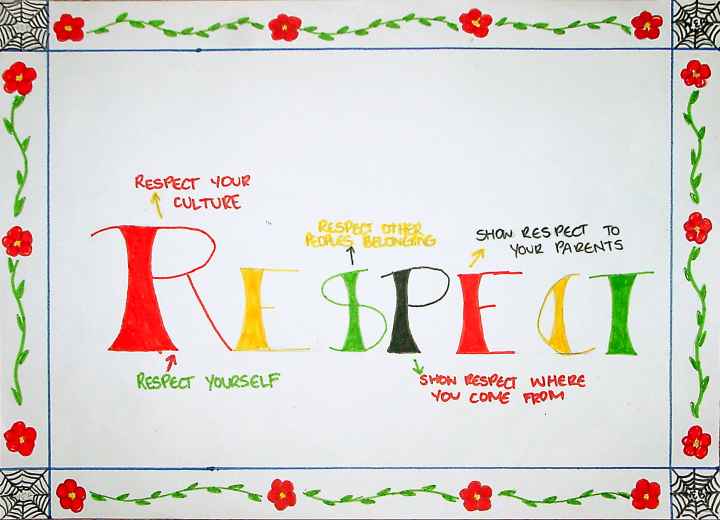 RESPECT YOUR
CULTURE
RESPECT OTHER
PEOPLES BELONGING
SHOW RESPECT TO
YOUR PARENTS
RESPECT
RESPECT YOURSELF
SHOW RESPECT WHERE
YOU COME FROM